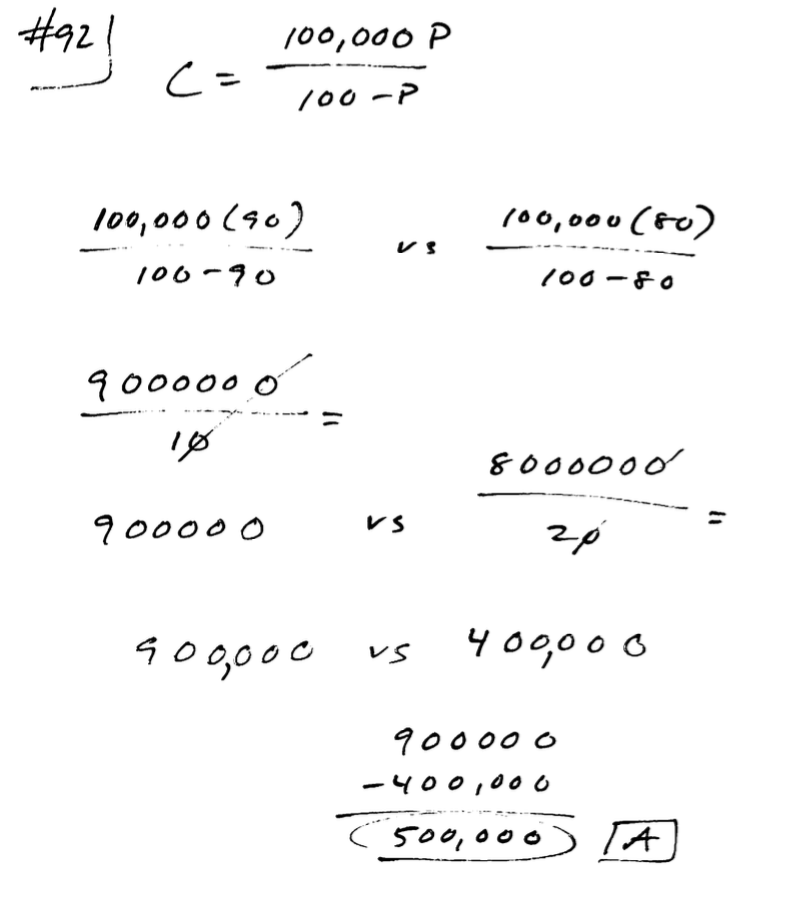 #92
C = 100,000 P / 100 - P
100,000 (90) / 100 - 90 vs 100,000 (80) / 100 - 80
9000000 / 10 =
900000 vs 8000000 / 20 =
900,000 vs 400,000
900000
-400,000
500,000 A